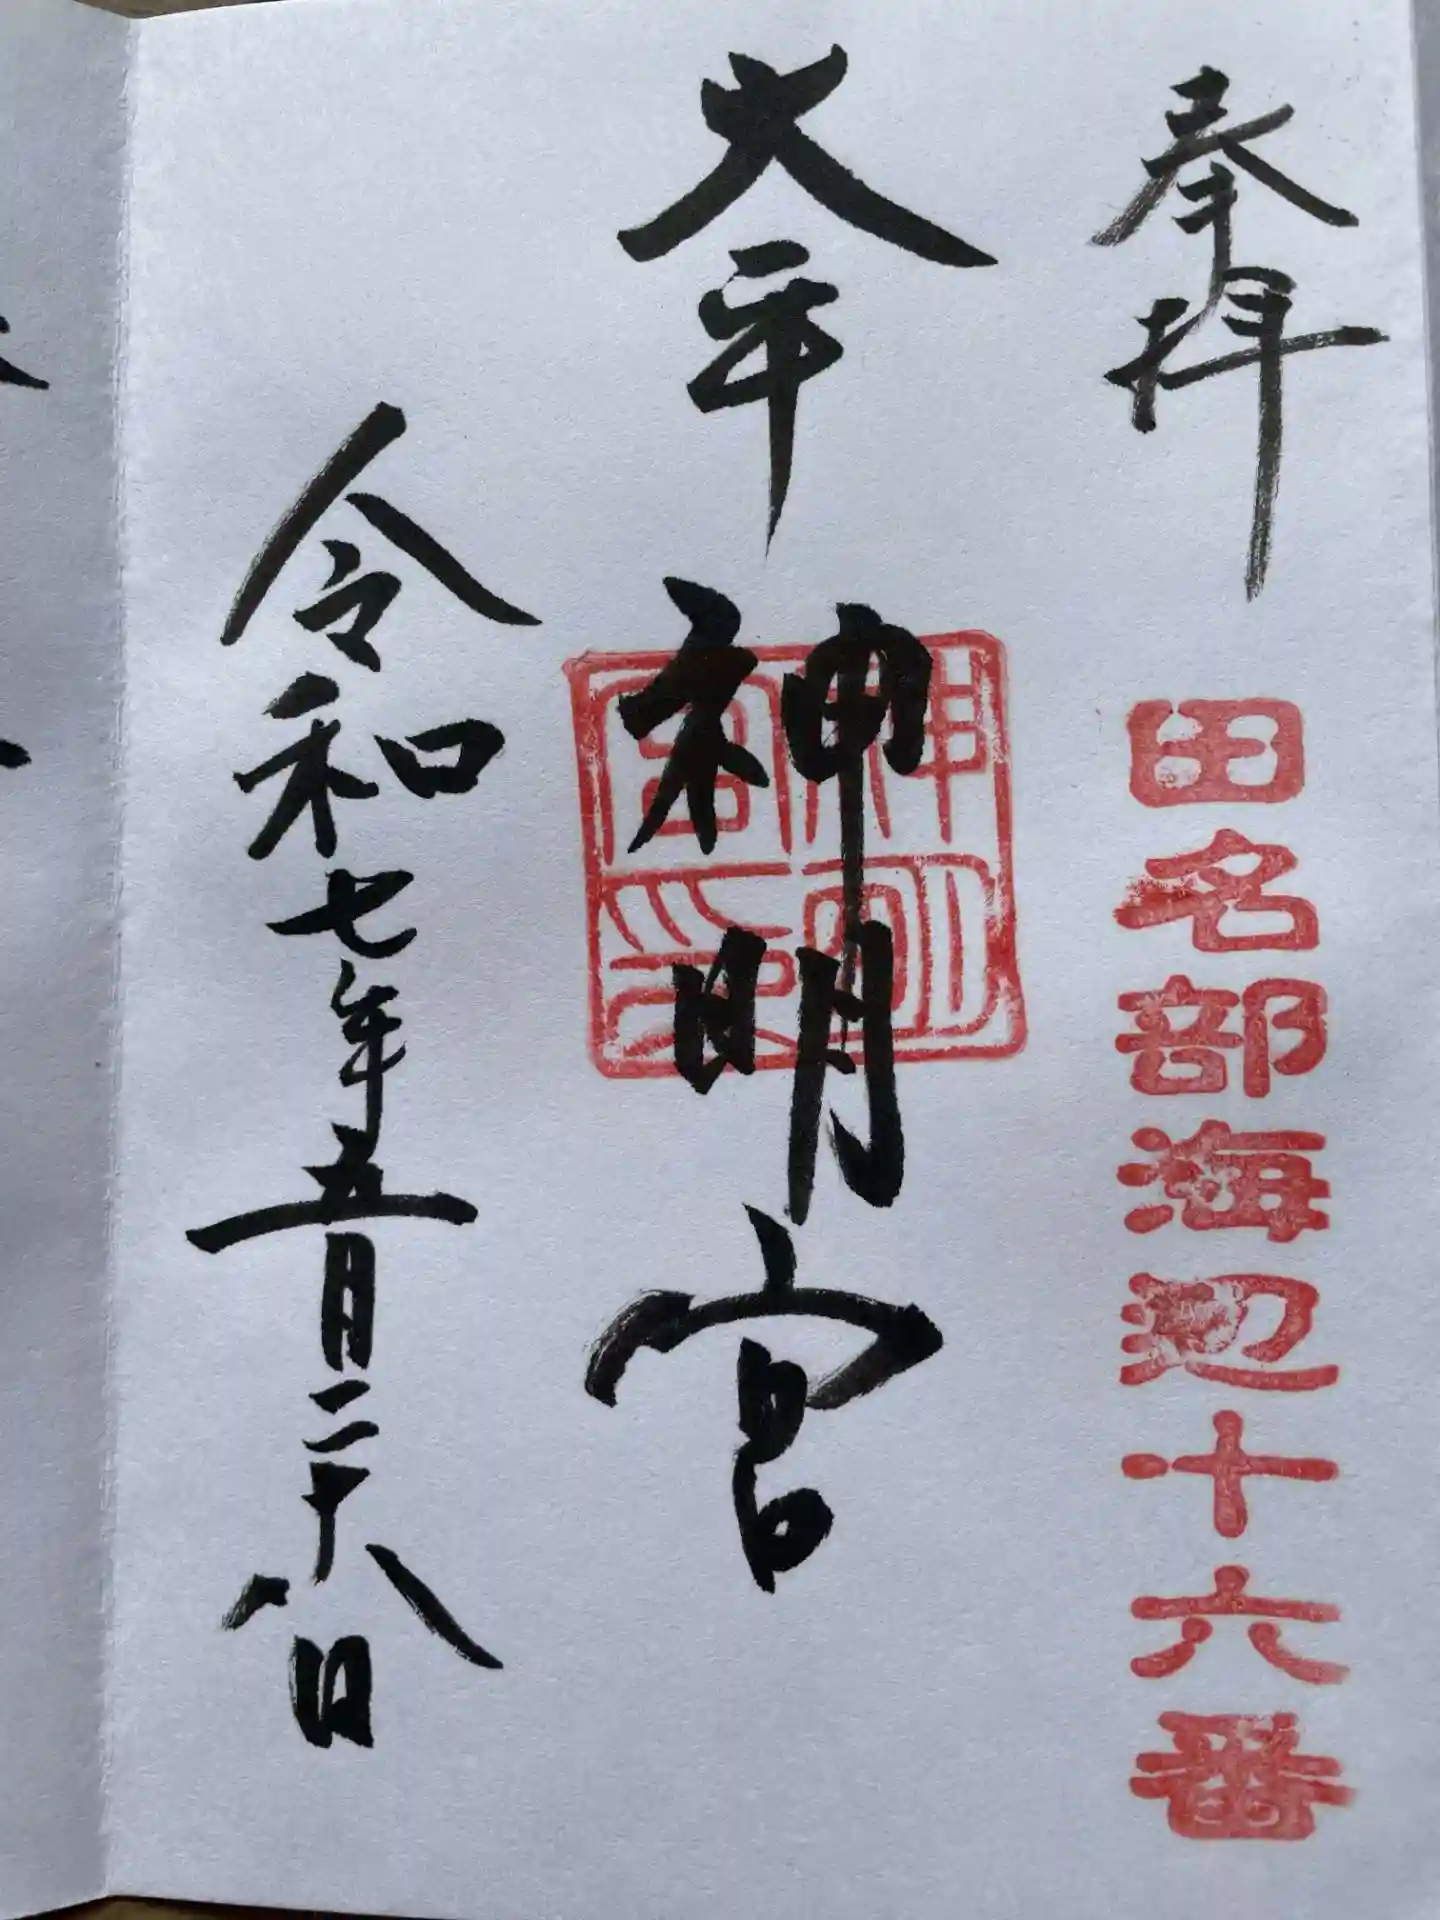 奉拝
田名部海辺十六番
大平
神明宮
神明宮印
令和七年五月二十八日